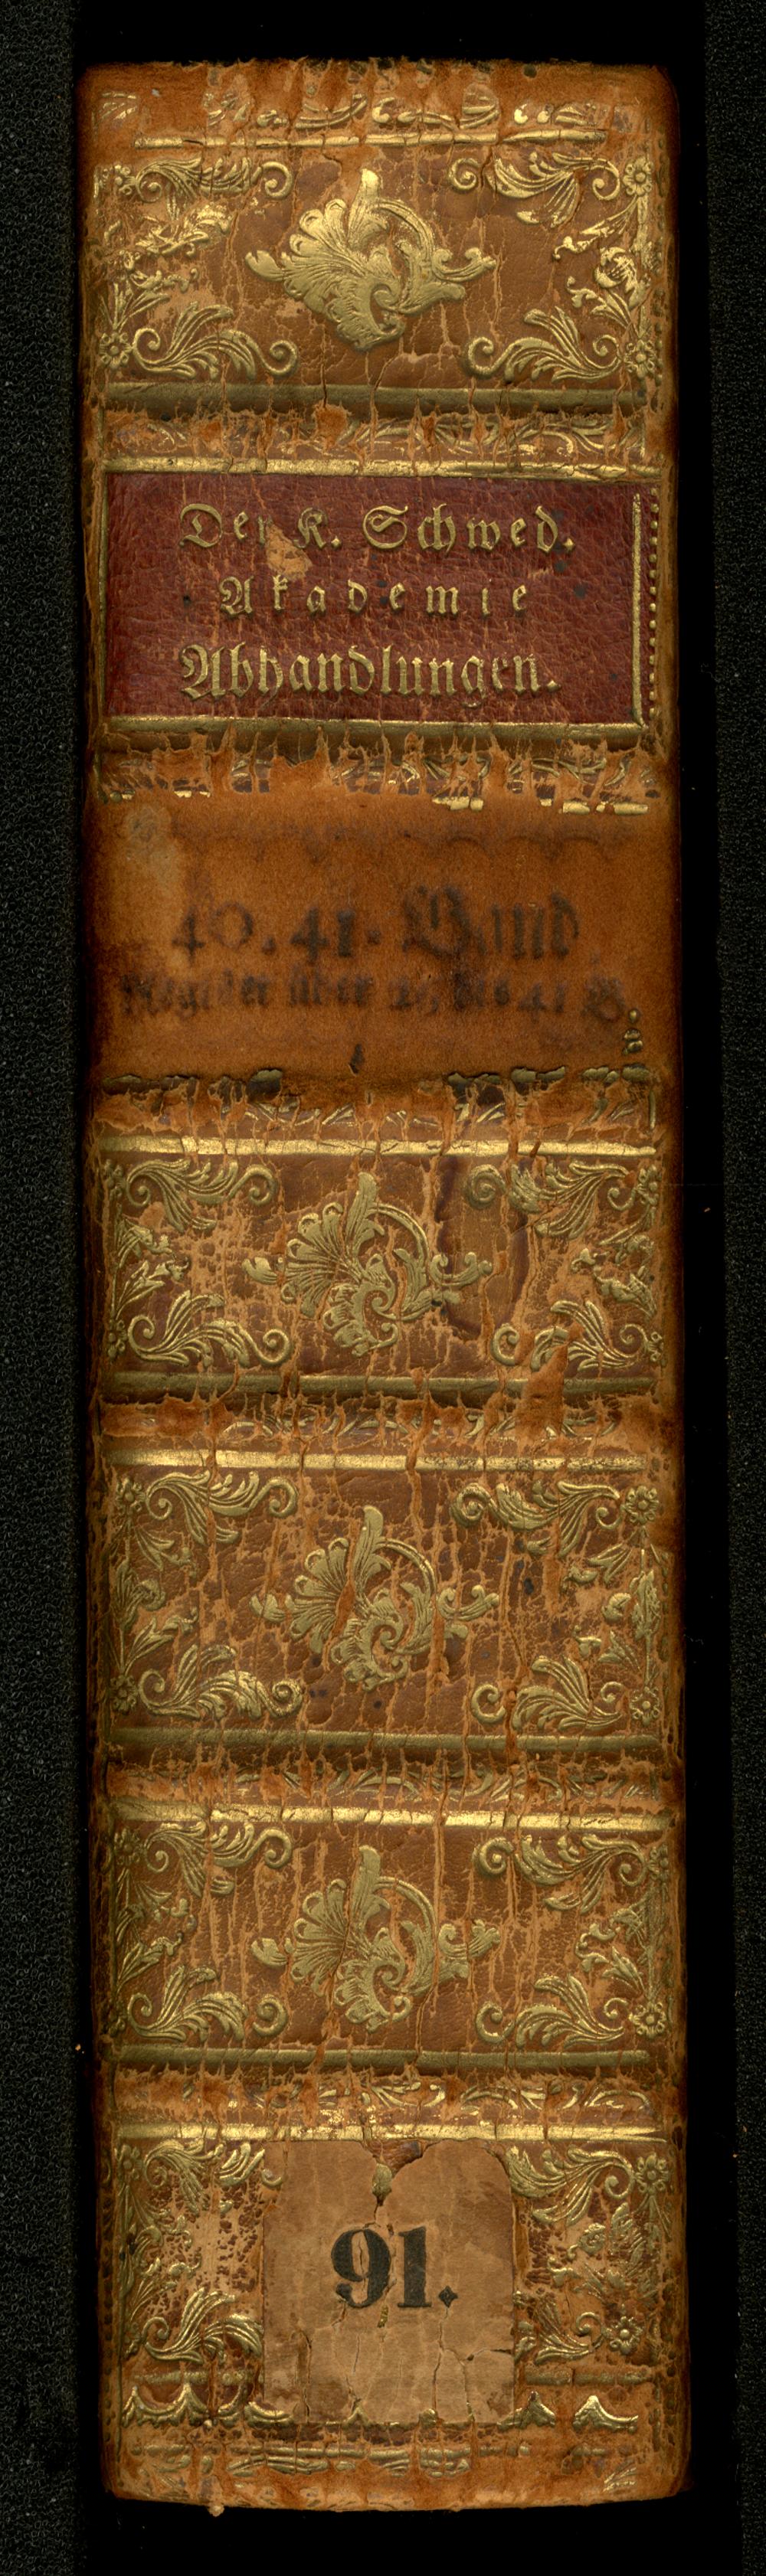 Der K. Schwed.
Akademie
Abhandlungen.
40. 41. Band.
Register über 26 bis 41 B.
91.